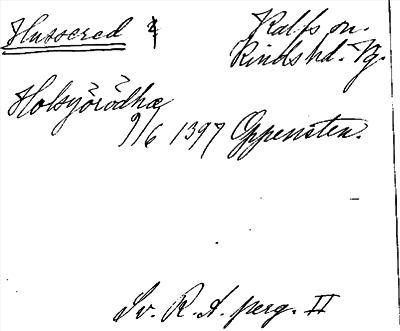 Hussered ⚵ Kalfs sn.
Kinds hd. Vg.
Holsyörödhæ
9/6 1397 Oppensten.
Sv. R. A. perg. II